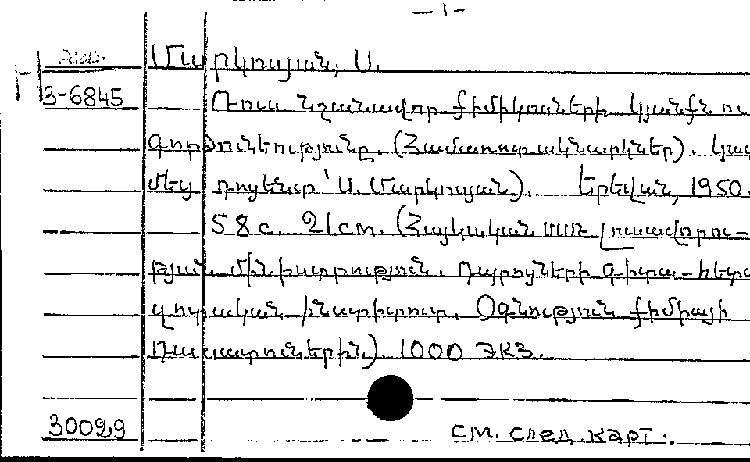 — 1 —
Մարկոսյան, Ս.
3-6845 Ռուս նշանավոր քիմիկոսների կյանքն ու
գործունեությունը. (Համառոտ ակնարկներ). Կազ
մեց դոցենտ՝ Ս. Մարկոսյան). Երեվան, 1950.
58 с. 21 см. (Հայկական ՍՍՌ լուսավորու-
թյան մինիստրություն. Դպրոցների գիտա-հետա
զոտական ինստիտուտ. Օգնություն քիմիայի
դասատուներին) 1000 экз.
30029 см. след. карт.